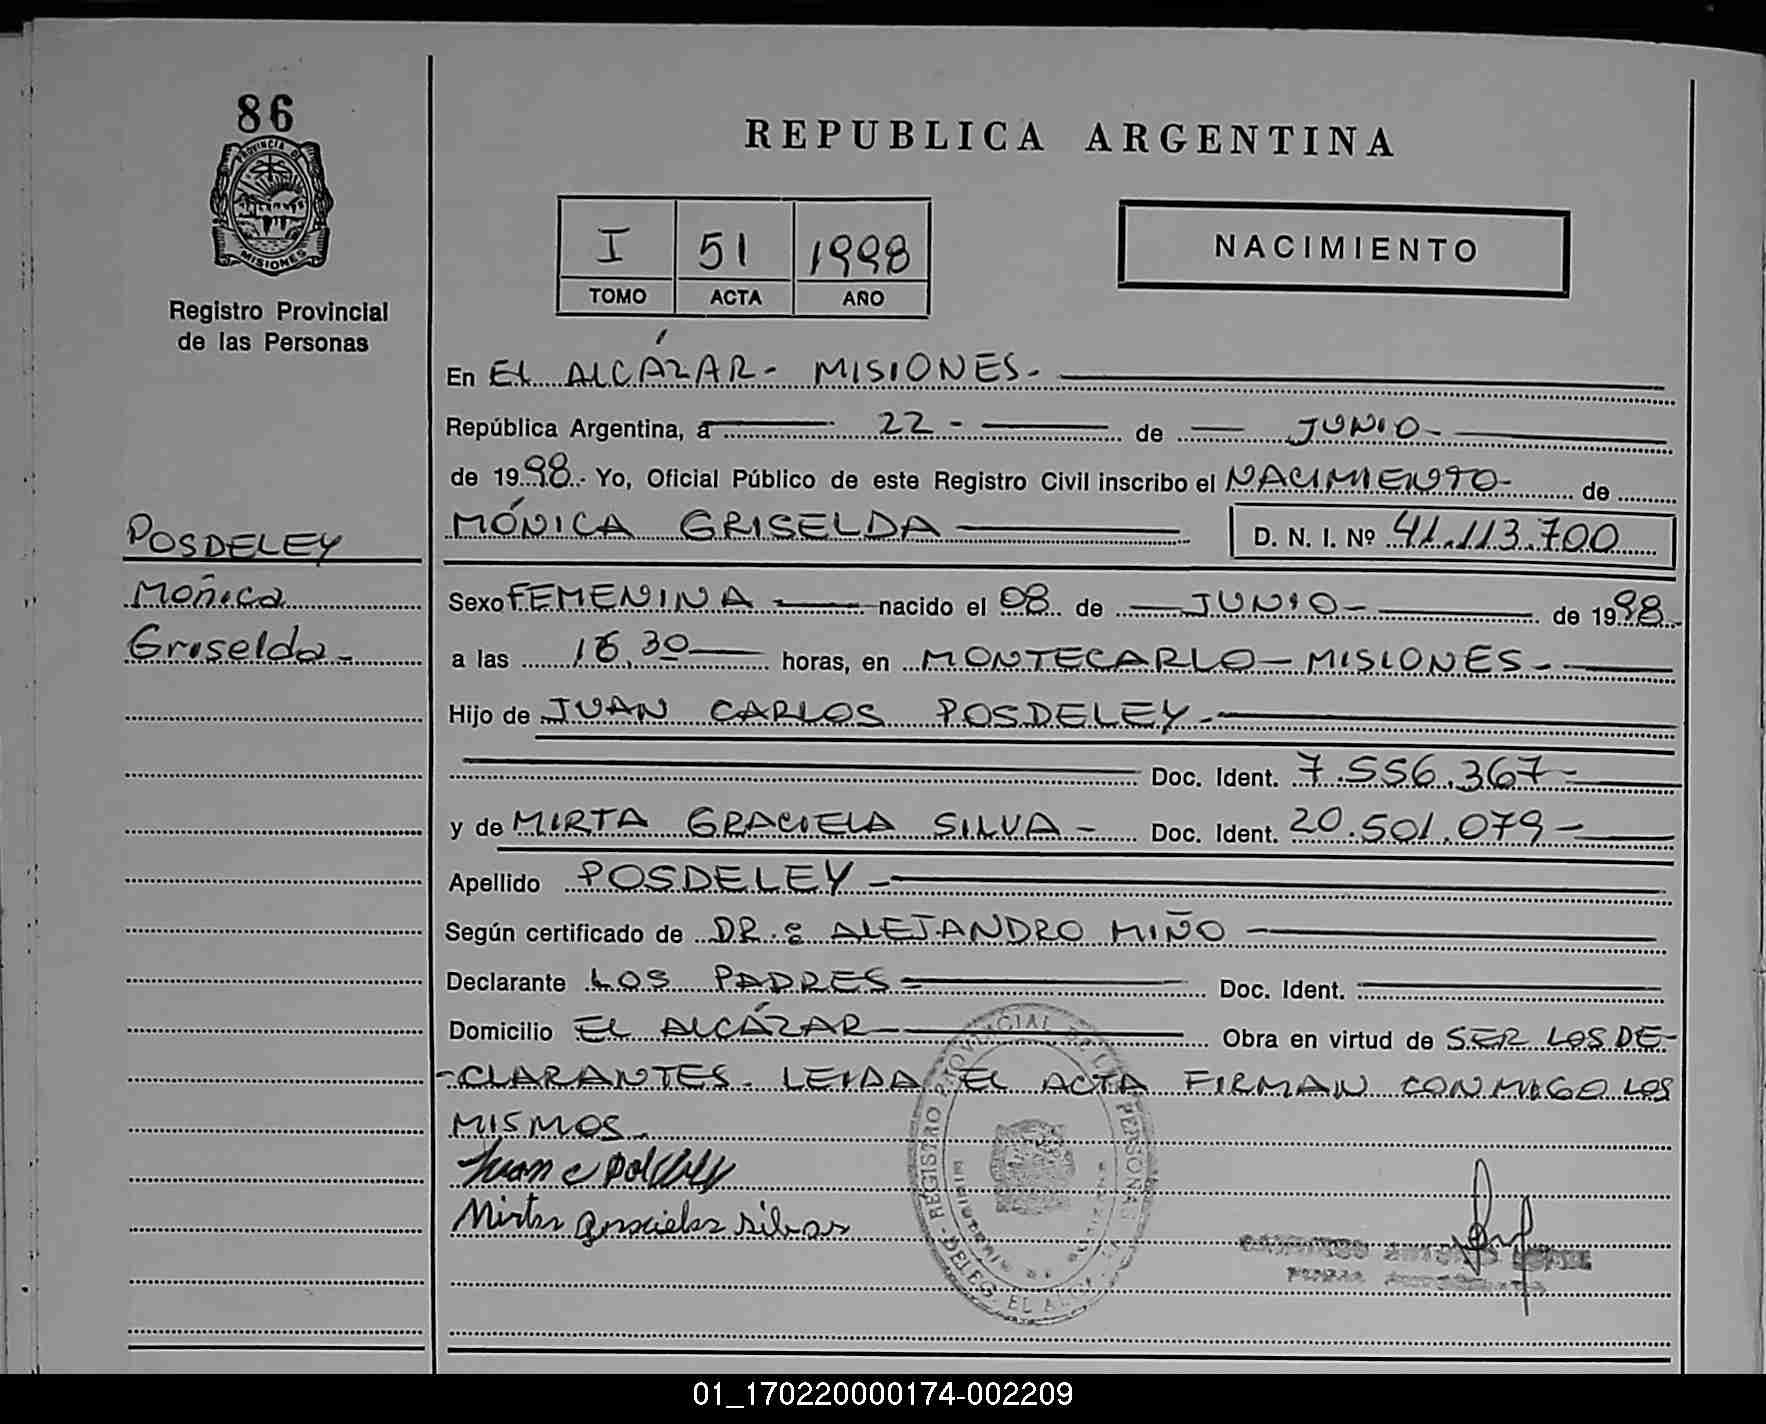 86
PROVINCIA DE
MISIONES
Registro Provincial
de las Personas
POSDELEY
Moñica
Griselda -
REPUBLICA ARGENTINA
I 51 1998
TOMO ACTA AÑO
NACIMIENTO
En EL ALCÁZAR - MISIONES -
República Argentina, a 22 - de JUNIO -
de 1998.- Yo, Oficial Público de este Registro Civil inscribo el NACIMIENTO - de
MÓNICA GRISELDA D. N. I. Nº 41.113.700
Sexo FEMENINA nacido el 08 de JUNIO - de 1998.-
a las 16,30 horas, en MONTECARLO - MISIONES -
Hijo de JUAN CARLOS POSDELEY -
Doc. Ident. 7.556.367 -
y de MIRTA GRACIELA SILVA - Doc. Ident. 20.501.079 -
Apellido POSDELEY -
Según certificado de DR.: ALEJANDRO MIÑO
Declarante LOS PADRES Doc. Ident.
Domicilio EL ALCÁZAR Obra en virtud de SER LOS DE-
-CLARANTES. LEIDA EL ACTA FIRMAN CONMIGO LOS
MISMOS.
Juan C
Mirta graciela silva
REGISTRO PROVINCIAL DE LAS PERSONAS
DELEG. EL ALC
01_170220000174-002209